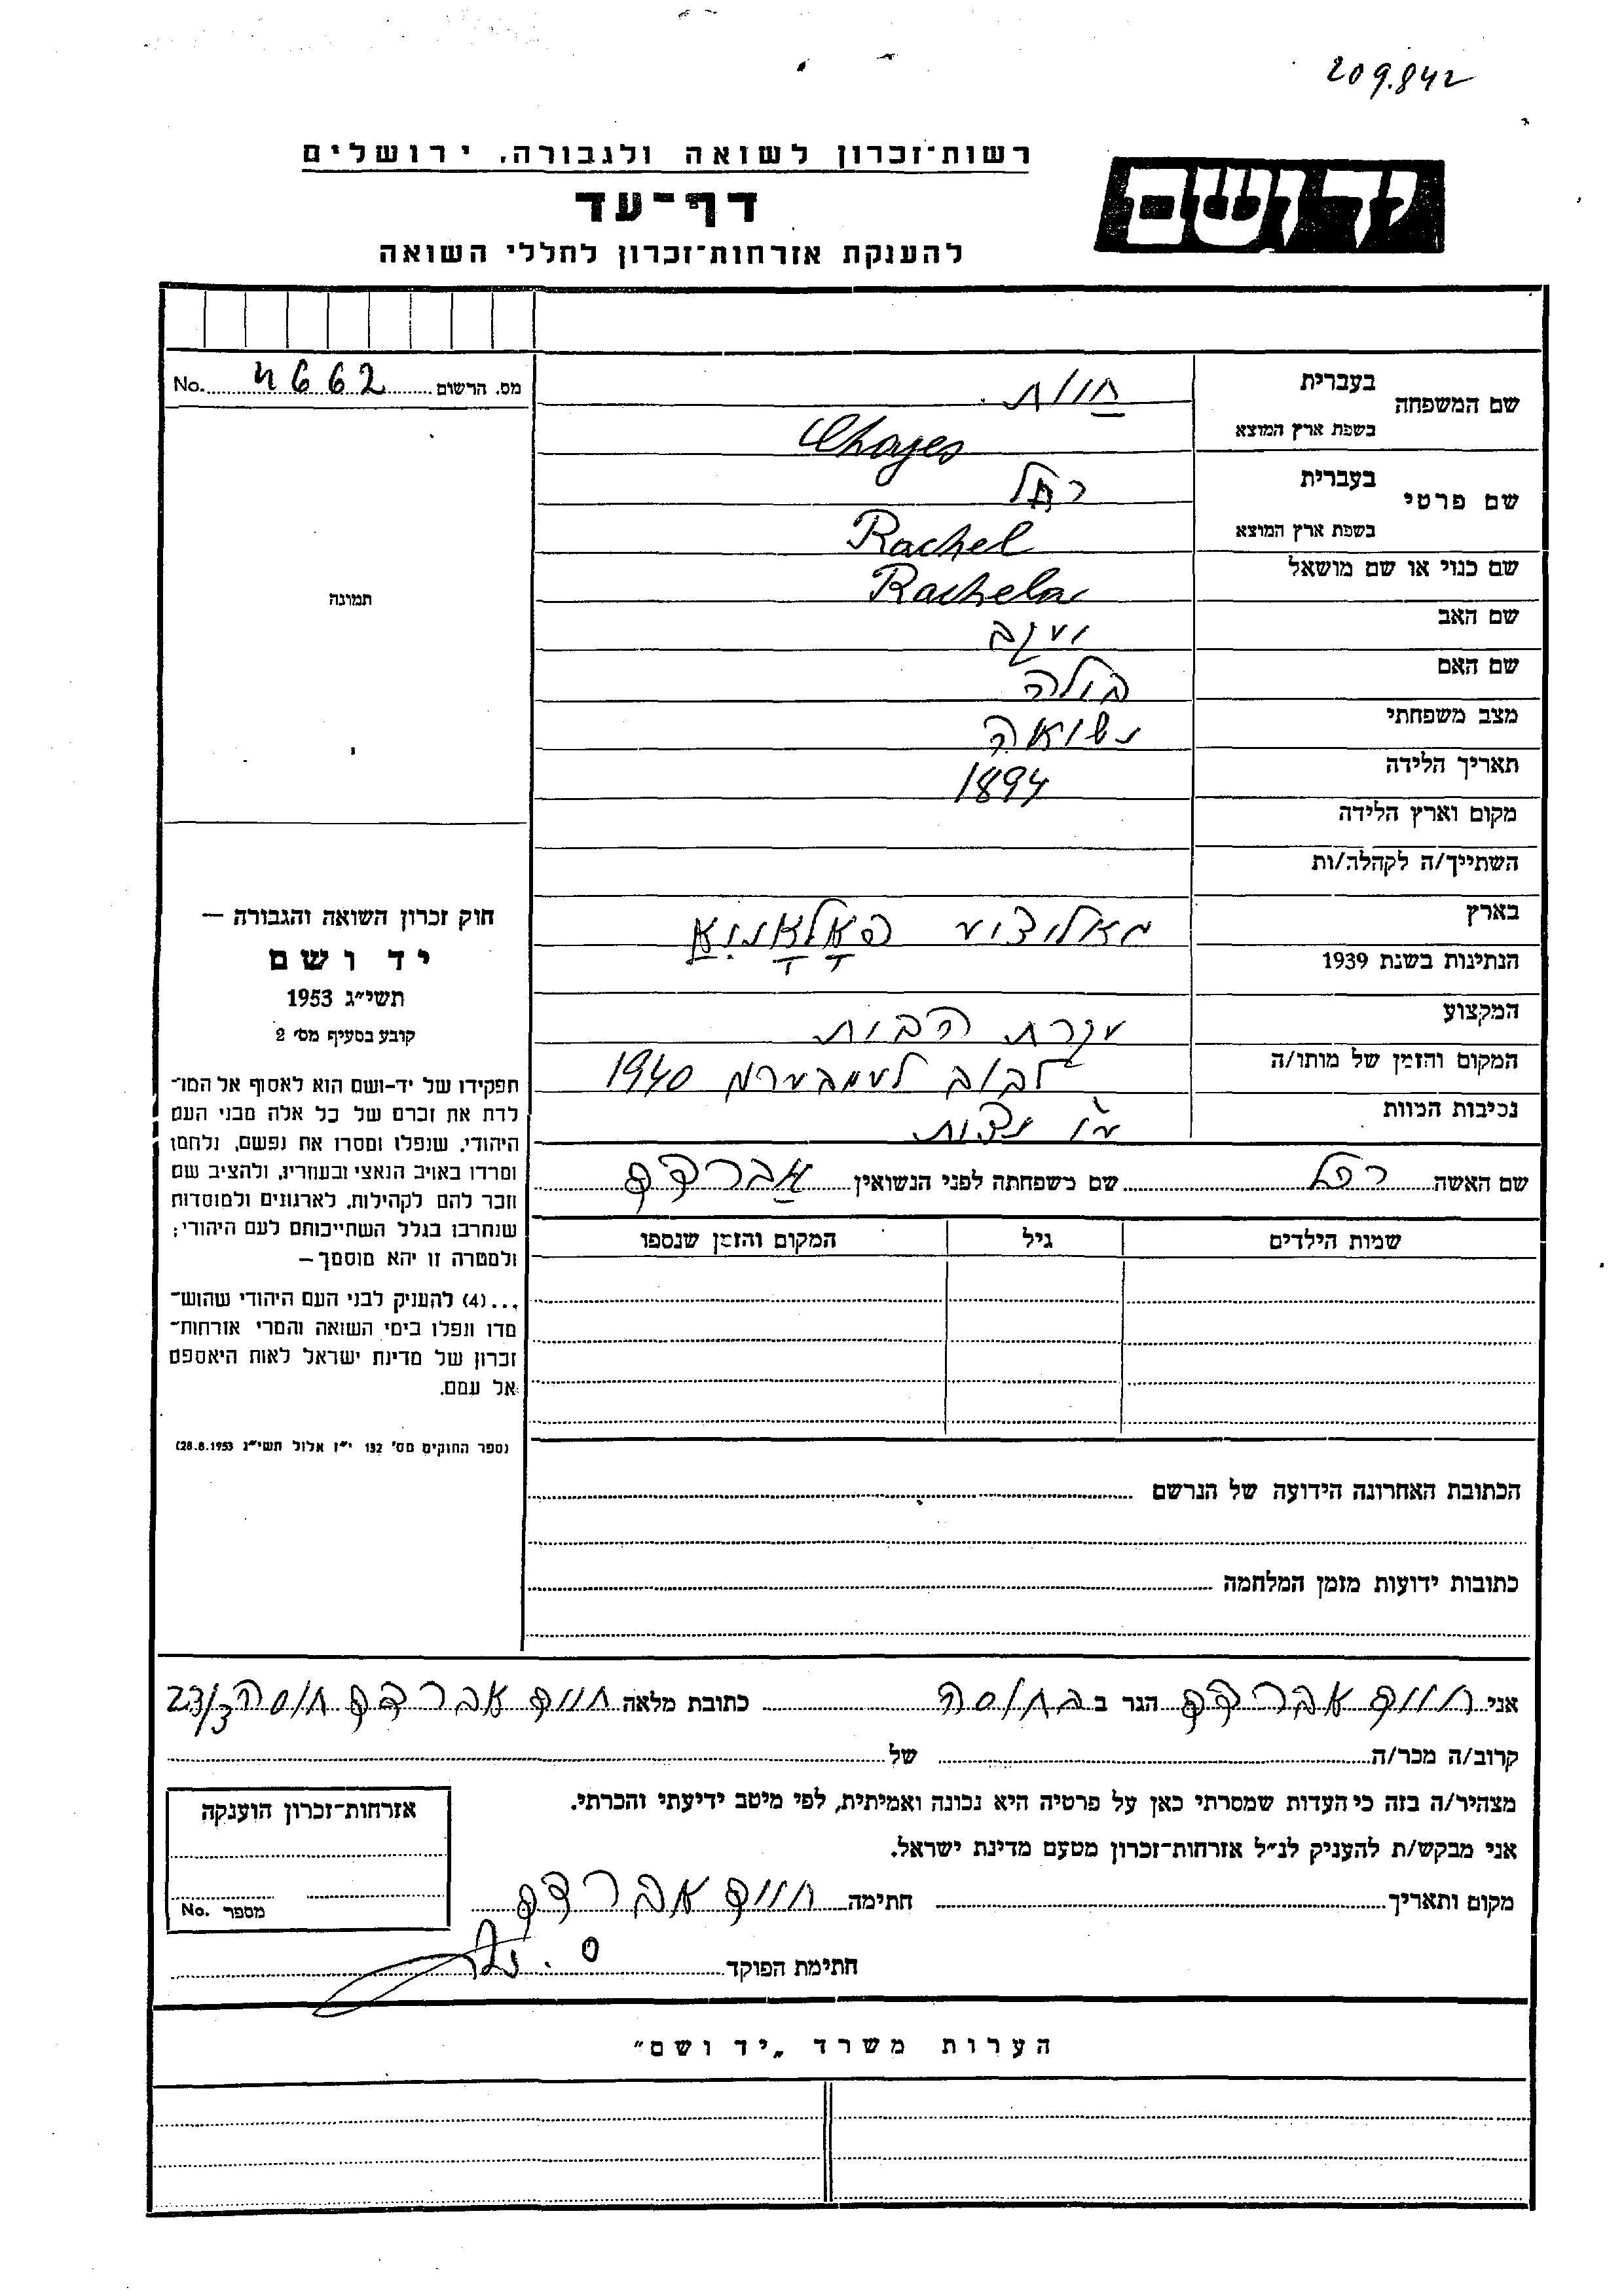 209.842
רשות־זכרון לשואה ולגבורה, ירושלים
יד ושם
דף־עד
להענקת אזרחות־זכרון לחללי השואה
מס. הרשום 4662 No.
שם המשפחה
בעברית
חיות.
בשפת ארץ המוצא
Chayes
שם פרטי
בעברית
רחל
בשפת ארץ המוצא
Rachel
שם כנוי או שם מושאל
Rachela
שם האב
יעקב
שם האם
בילה
מצב משפחתי
נשואה
תאריך הלידה
1894
מקום וארץ הלידה
השתייך/ה לקהלה/ות
בארץ
גאליציע פאלאניא
הנתינות בשנת 1939
המקצוע
עקרת הבית
המקום והזמן של מותו/ה
לבוב לעמבערג 1940
נסיבות המוות
ע״י נצית
שם האשה רחל שם משפחתה לפני הנשואין אברדם
שמות הילדים גיל המקום והזמן שנספו
הכתובת האחרונה הידועה של הנרשם
כתובות ידועות מזמן המלחמה
תמונה
חוק זכרון השואה והגבורה —
יד ושם
תשי״ג 1953
קובע בסעיף מס׳ 2
תפקידו של יד-ושם הוא לאסוף אל המו־
לדת את זכרם של כל אלה מבני העם
היהודי, שנפלו ומסרו את נפשם, נלחמו
ומרדו באויב הנאצי ובעוזריו, ולהציב שם
וזכר להם לקהילות, לארגונים ולמוסדות
שנחרבו בגלל השתייכותם לעם היהודי;
ולמטרה זו יהא מוסמך—
...(4) להעניק לבני העם היהודי שהוש־
מדו ונפלו בימי השואה והמרי אזרחות־
זכרון של מדינת ישראל לאות היאספם
אל עמם.
(ספר החוקים מס׳ 132 י״ז אלול תשי״ג 28.8.1953)
אני חיים אברדם הגר ב בחיפה כתובת מלאה חיים אברדם חיפה 23/3
קרוב/ה מכר/ה של
מצהיר/ה בזה כי העדות שמסרתי כאן על פרטיה היא נכונה ואמיתית, לפי מיטב ידיעתי והכרתי.
אני מבקש/ת להעניק לנ״ל אזרחות־זכרון מטעם מדינת ישראל.
מקום ותאריך חתימה חיים אברדם
חתימת הפוקד
אזרחות־זכרון הוענקה
מספר No.
הערות משרד „יד ושם״